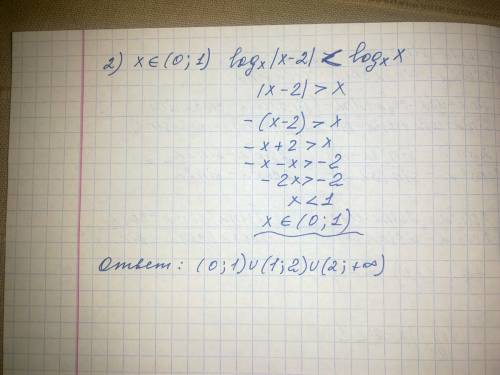 2) x ∈ (0; 1) log_x |x-2| < log_x x
|x-2| > x
-(x-2) > x
-x+2 > x
-x-x > -2
-2x > -2
x < 1
x ∈ (0; 1)
Ответ: (0; 1)∪(1; 2)∪(2; +∞)